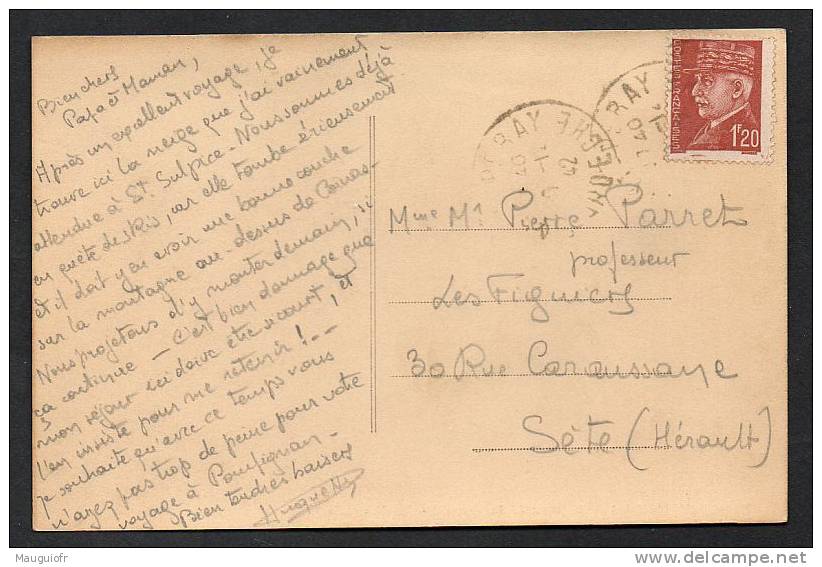 Bien chers
Papa et Maman,
Après un excellent voyage, je
trouve ici la neige que j'ai vainement
attendue à St. Sulpice. Nous sommes déjà
en quête de skis, car elle tombe sérieusement
et il doit y en avoir une bonne couche
sur la montagne au-dessus de
Nous projetons d'y monter demain, si
ça continue - C'est bien dommage que
mon séjour ici doive être si court, et
l'on insiste pour me retenir! --
Je souhaite qu'avec ce temps vous
n'ayez pas trop de peine pour votre
voyage à Pompignan -
Bien tendres baisers
Huguette
POSTES FRANÇAISES
1F20
RAY
RAY
42
Mme Mr Pierre Parret
professeur
Les Figuiers
30 Rue Caraussane
Sète (Hérault)
Mauguiofr
http://www.delcampe.net